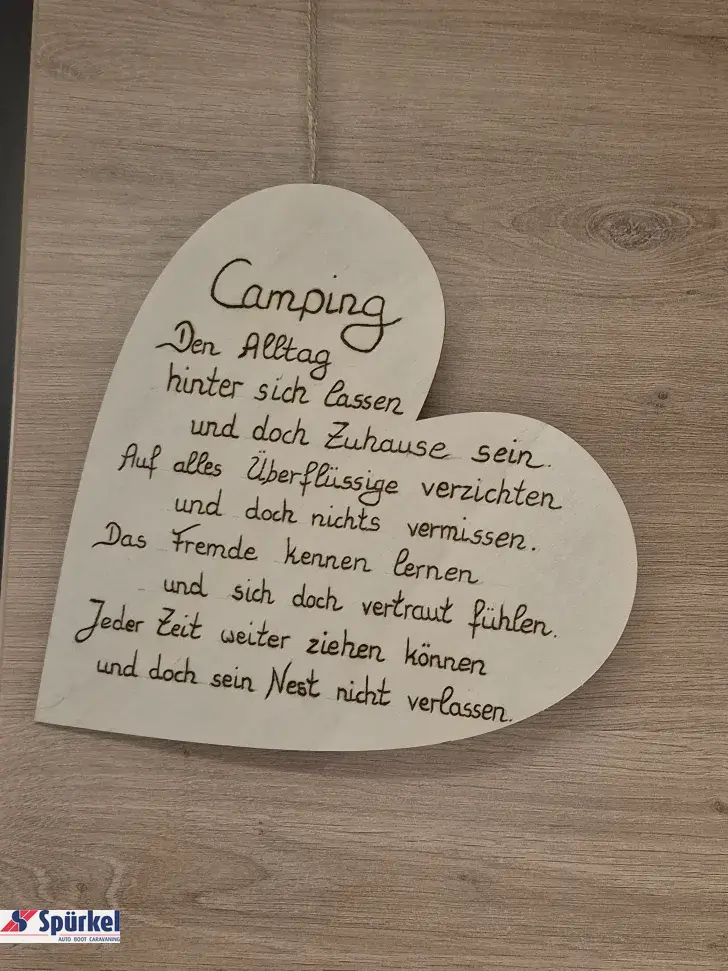 Camping
Den Alltag
hinter sich lassen
und doch Zuhause sein.
Auf alles Überflüssige verzichten
und doch nichts vermissen.
Das Fremde kennen lernen
und sich doch vertraut fühlen.
Jeder Zeit weiter ziehen können
und doch sein Nest nicht verlassen.
Spürkel
AUTO BOOT CARAVANING